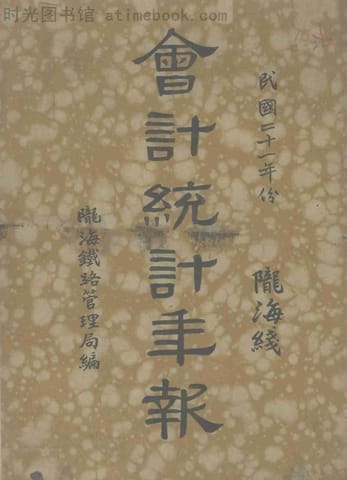 时光图书馆 atimebook.com
民國二十一年份
隴海綫
會計統計年報
隴海鐵路管理局編